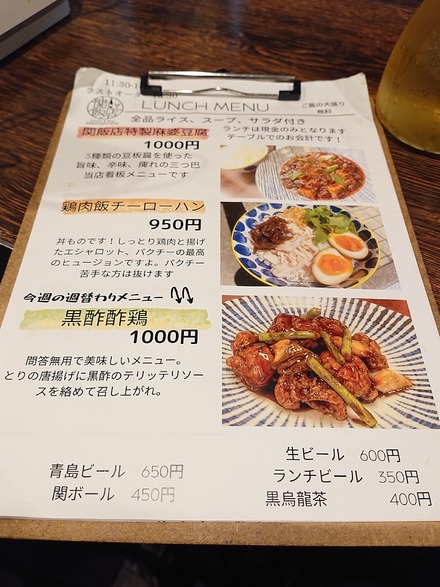 11:30-1
ラストオーダー
LUNCH MENU
ご飯の大盛り
無料
全品ライス、スープ、サラダ付き
ランチは現金のみとなります
テーブルでのお会計です！
関飯店特製麻婆豆腐
1000円
3種類の豆板醤を使った
旨味、辛味、痺れの三つ巴
当店看板メニューです
鶏肉飯チーローハン
950円
丼ものです！しっとり鶏肉と揚げ
たエシャロット、パクチーの最高
のヒュージョンですよ。パクチー
苦手な方は抜けます
今週の週替わりメニュー
黒酢酢鶏
1000円
問答無用で美味しいメニュー。
とりの唐揚げに黒酢のテリッテリソー
スを絡めて召し上がれ。
青島ビール 650円
関ボール 450円
生ビール 600円
ランチビール 350円
黒烏龍茶 400円